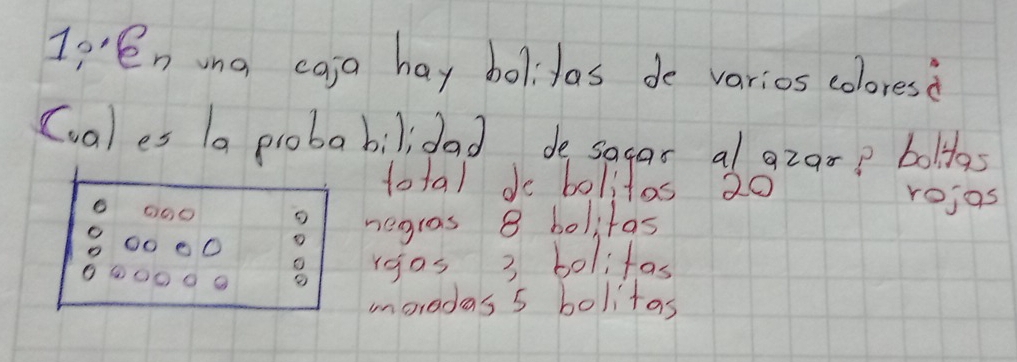 1¿ En una caja hay bolitas de varios colores ¿
Cual es la probabilidad de sacar al azar? bolitas
total de bolitas 20 rojas
negras 8 bolitas
rojas 3 bolitas
moradas 5 bolitas